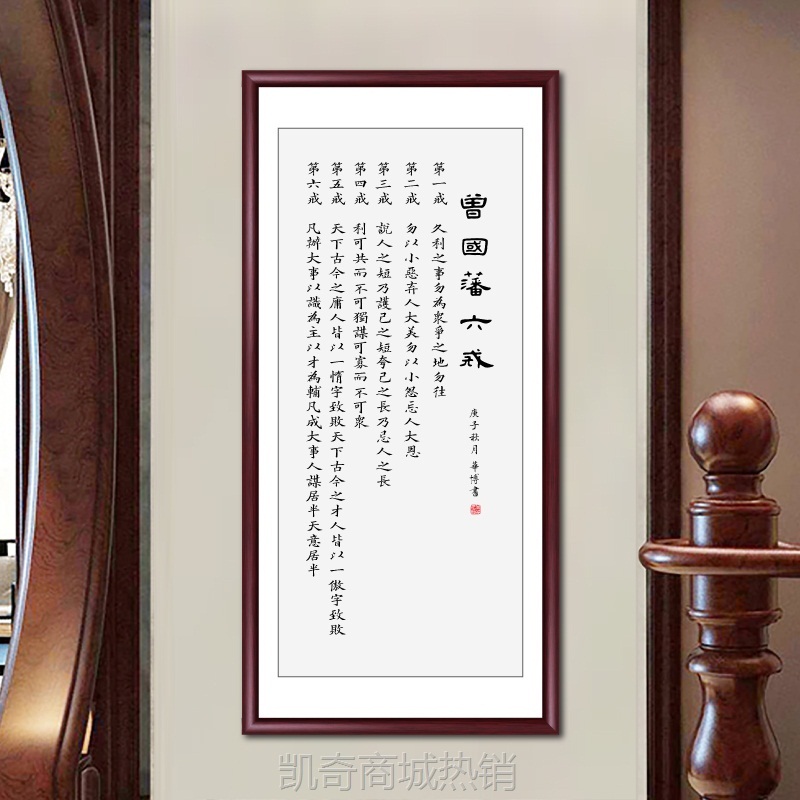 曾國藩六戒
庚子秋月 華博書
第一戒 久利之事勿為衆爭之地勿往
第二戒 勿以小惡弃人大美勿以小怨忘人大恩
第三戒 說人之短乃護己之短夸己之長乃忌人之長
第四戒 利可共而不可獨謀可寡而不可衆
第五戒 天下古今之庸人皆以一惰字致敗天下古今之才人皆以一傲字致敗
第六戒 凡辦大事以識為主以才為輔凡成大事人謀居半天意居半
凯奇商城热销